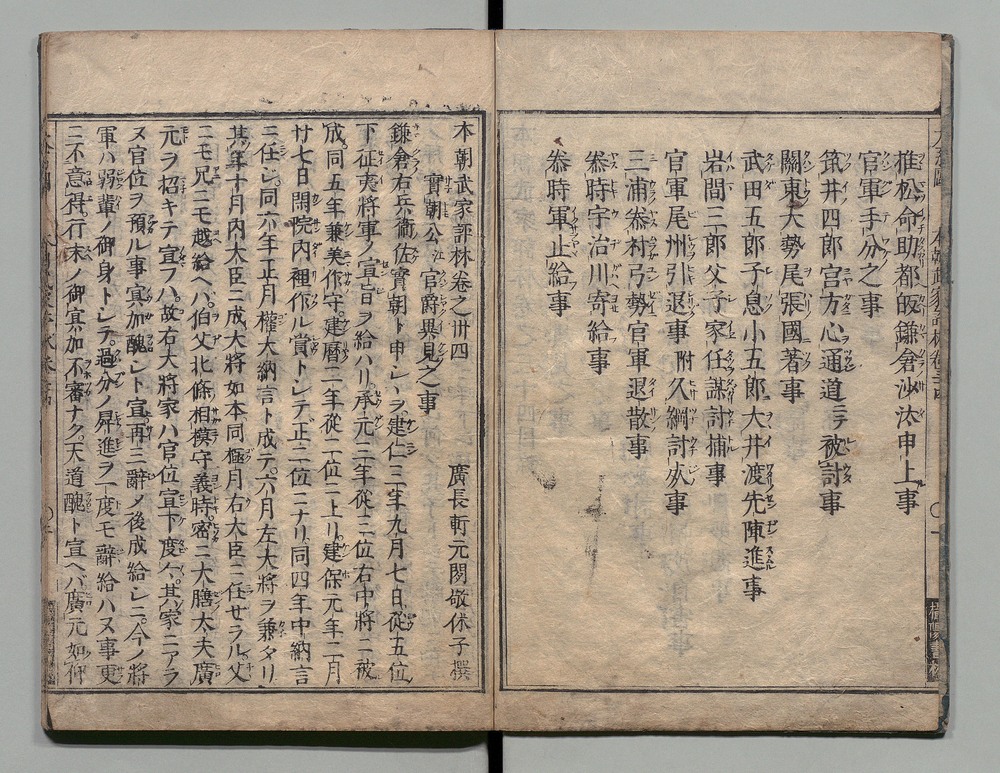 推松命助都皈鎌倉沙汰申上事
官軍手分之事
筑井四郎宮方心通道ニテ被討事
關東大勢尾張國著事
武田五郎子息小五郎大井渡先陣進事
岩間三郎父子家任謀討捕事
官軍尾州引退事 附 久綱討死事
三浦泰村弓勢官軍退散事
泰時宇治川寄給事
泰時軍止給事
本朝武家評林卷之卅四
廣長軒元閑敬休子撰
實朝公 官爵異見之事
鎌倉右兵衞佐實朝ト申シヽヲ建仁三年九月七日從五位
下征夷將軍ノ宣旨ヲ給ハリ承元二年從三位右中將ニ被
成同五年兼美作守建暦二年從二位ニ上リ建保元年二月
廿七日閑院内裡作ル賞トシテ正二位ニナリ同四年中納言
ニ任シ同六年正月權大納言ト成テ六月左大將ヲ兼タリ
其年十月内大臣ニ成大將如本同極月右大臣ニ任セラル父
ニモ兄ニモ越給ヘハ伯父北條相模守義時密ニ大膳太夫廣
元ヲ招キテ宣フハ故右大將家ハ官位宣下度々其家ニアラ
ヌ官位ヲ預ル事冥加醜シト宣再三辭ノ後成給シニ今ノ將
軍ハ弱輩ノ御身トシテ過分ノ昇進ヲ一度モ辭給ハヌ事更
ニ不意得行末ノ御冥加不審ナク天道醜ト宣ヘバ廣元如何